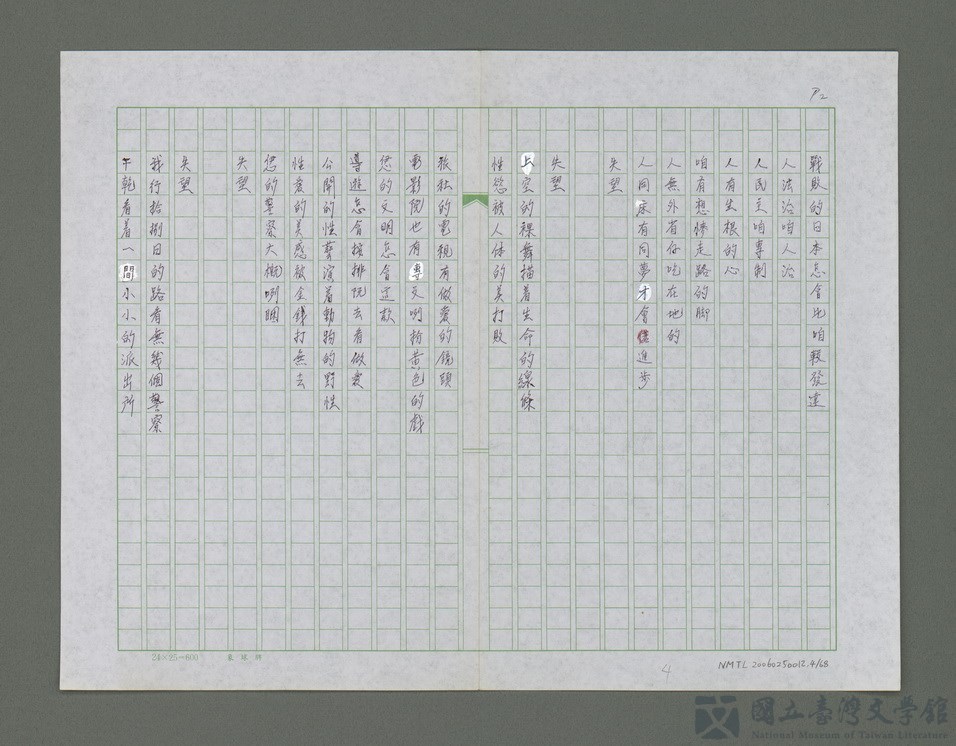 P2
戰敗的日本怎會比咱較發達
人法治咱人治
人民主咱專制
人有生根的心
咱有想慘走路的脚
人無外省仔吃在地的
人同床有同夢才會進步
失望
失望
上空的裸舞描着生命的線條
性慾被人体的美打敗
私的電視有做愛的鏡頭
電影院也有專文咧扮黄色的戲
您的文明怎會這款
導遊怎會接排阮去看做愛
公開的性藝演着動物的野性
性愛的美感被金錢打無去
您的警察大概咧睏
失望
失望
我行拾捌日的路看無幾個警察
干乾看着一間小小的派出所
24×25=600
4
NMTL 20060250012.4/68
國立臺灣文學館
National Museum of Taiwan Literature